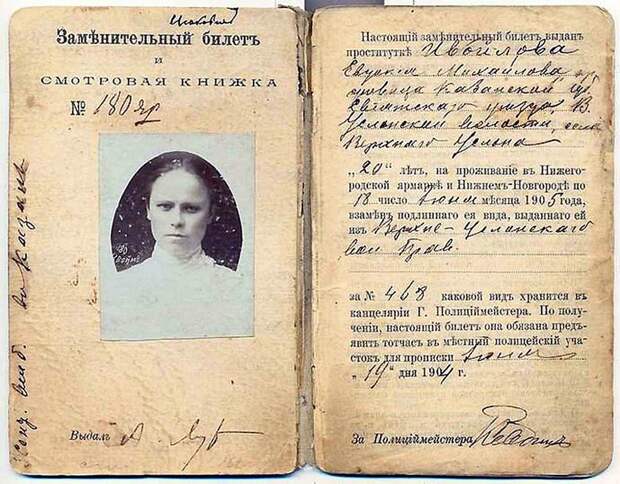 Замѣнительный билетъ
и
СМОТРОВАЯ КНИЖКА
№ 180
Выдалъ А.
Настоящій замѣнительный билетъ выданъ
проституткѣ Ивойлова
Михайлова
Казанской губ.
уезда, В
Услонской волости, села
Верхняго Услона
„20“ лѣтъ, на проживаніе въ Нижего-
родской ярмаркѣ и Нижнемъ-Новгородѣ по
18 число Іюня мѣсяца 1905 года,
взамѣнъ подлиннаго ея вида, выданнаго ей
изъ Верхне-Услонскаго
вол Прав.
за № 463 каковой видъ хранится въ
канцеляріи Г. Полиціймейстера. По полу-
ченіи, настоящій билетъ она обязана предъ-
явить тотчасъ въ мѣстный полицейскій уча-
стокъ для прописки Іюня
„19“ дня 1904 г.
За Полиціймейстера